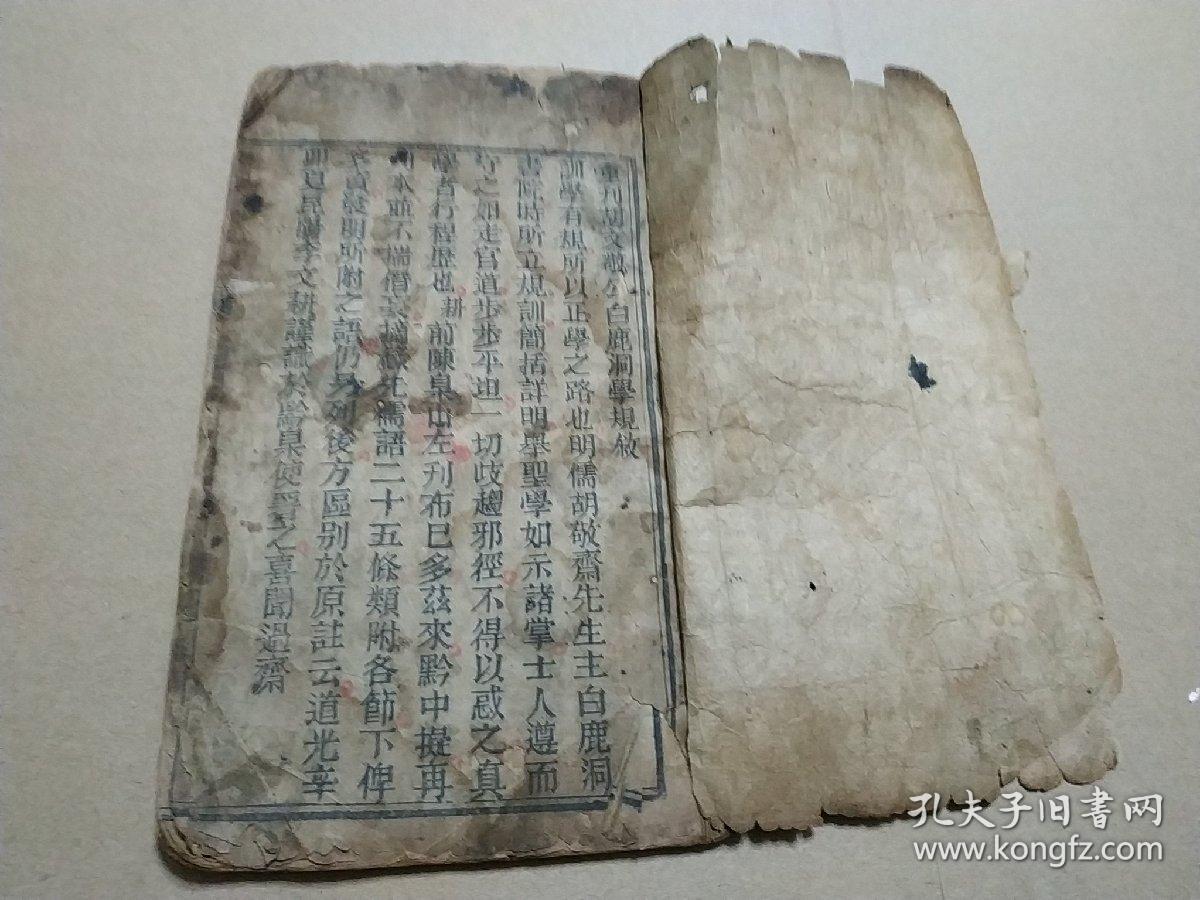 重刊胡文敬公白鹿洞學規敘
訓學有規所以正學之路也明儒胡敬齋先生主白鹿洞
書院時所立規訓簡括詳明舉聖學如示諸掌士人遵而
行之如走官道步步平坦一切歧趨邪徑不得以惑之真
學者行程歷也耕前陳臬山左刋布已多茲來黔中擬再
刋本並不揣僭妄摘先儒語二十五條類附各節下俾
明所附之語仍另列後方區别於原註云道光辛
卯夏昆陽李文耕謹識於黔臬使署之喜聞過齋
孔夫子旧书网
www.kongfz.com